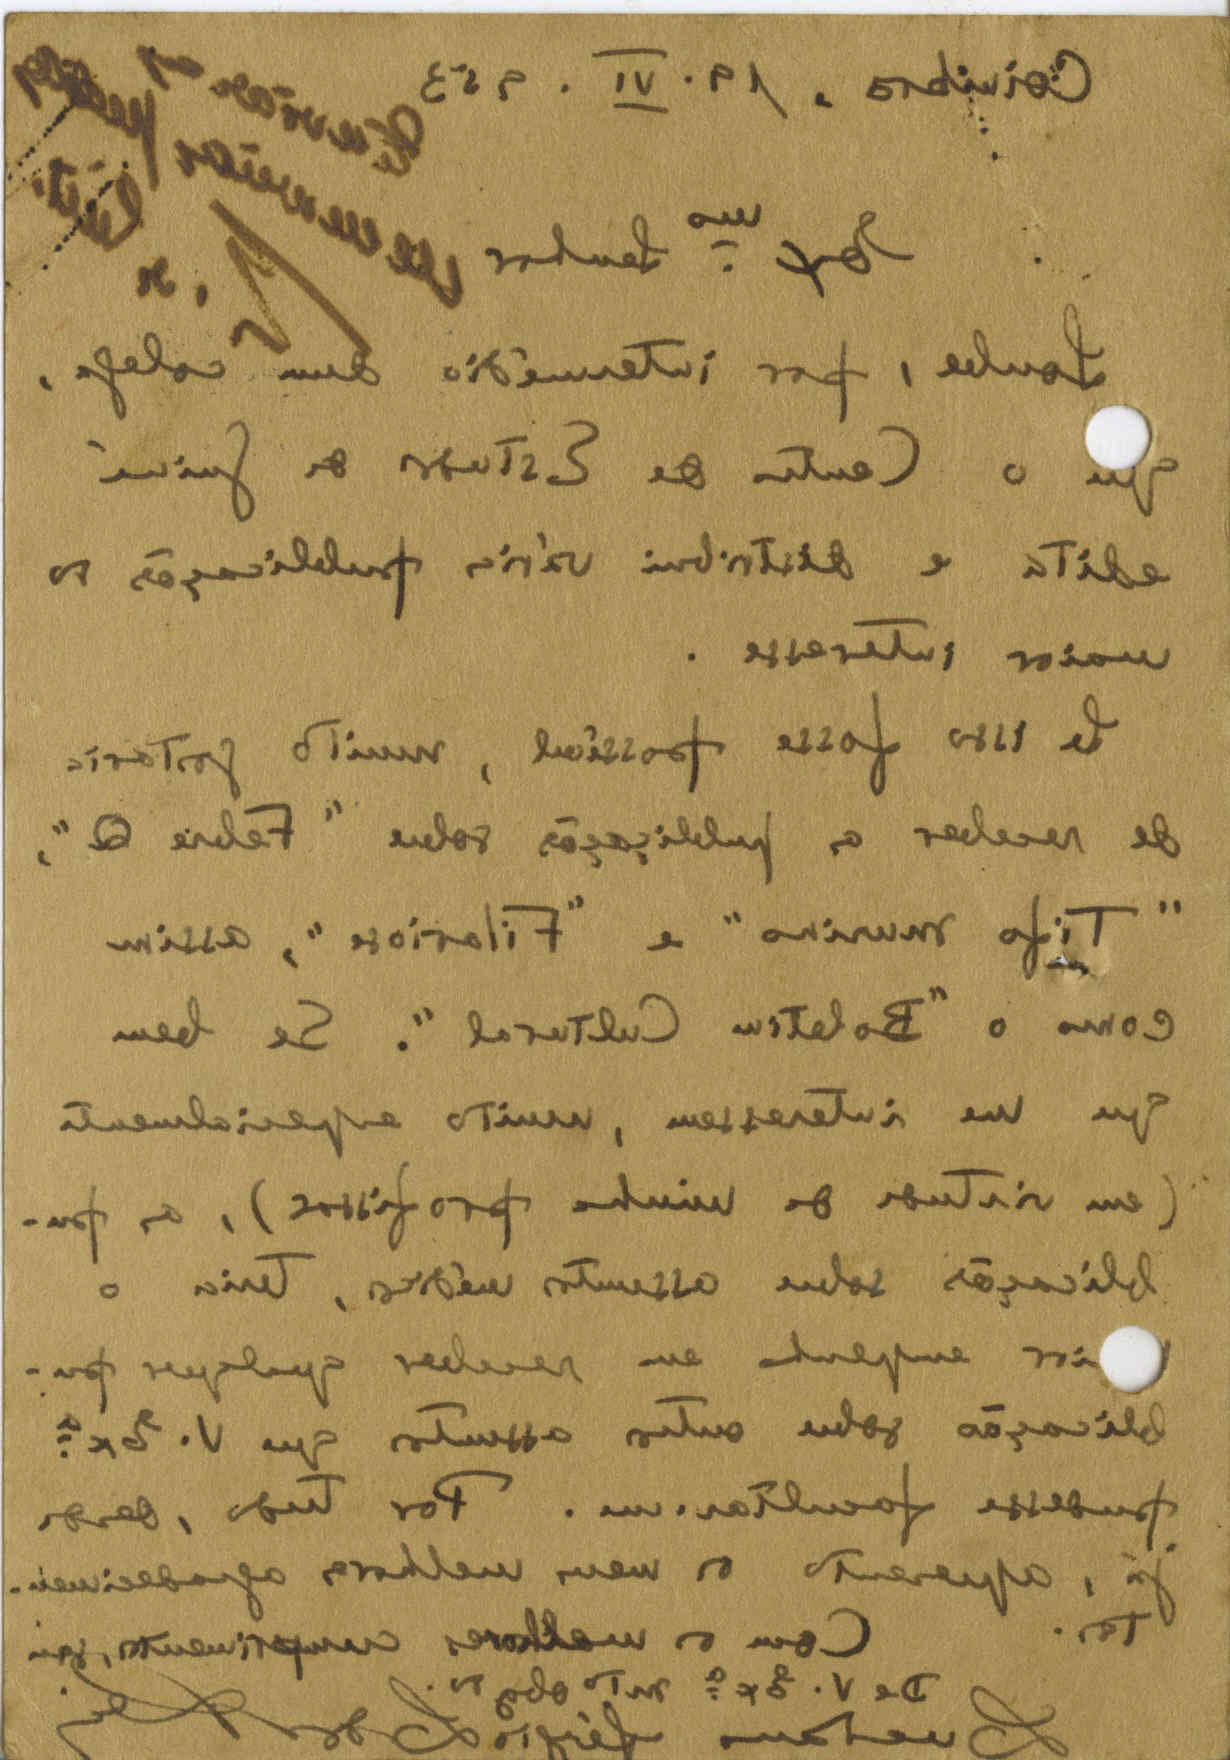 Coimbra, 19. VI. 953
Enviar as
se enviar pedidos
Exmo. Senhor
Soube, por intermédio dum colega,
que o Centro de Estudos da Guiné
edita e distribui várias publicações do
maior interesse.
Se isso fosse possível, muito gostaria
de receber as publicações sobre "Febre Q",
"Tifo murino" e "Filariose", assim
como o "Boletim Cultural". Se bem
que me interessem, muito especialmente
(em virtude da minha profissão), as pu-
blicações sobre assuntos médicos, teria o
maior empenho em receber qualquer pu-
blicação sobre outros assuntos que V. Exª
pudesse facultar-me. Por tudo, desde
já, apresento os meus melhores agradecimen-
tos.
Com os melhores cumprimentos, sou
De V. Exª mto obgdo.